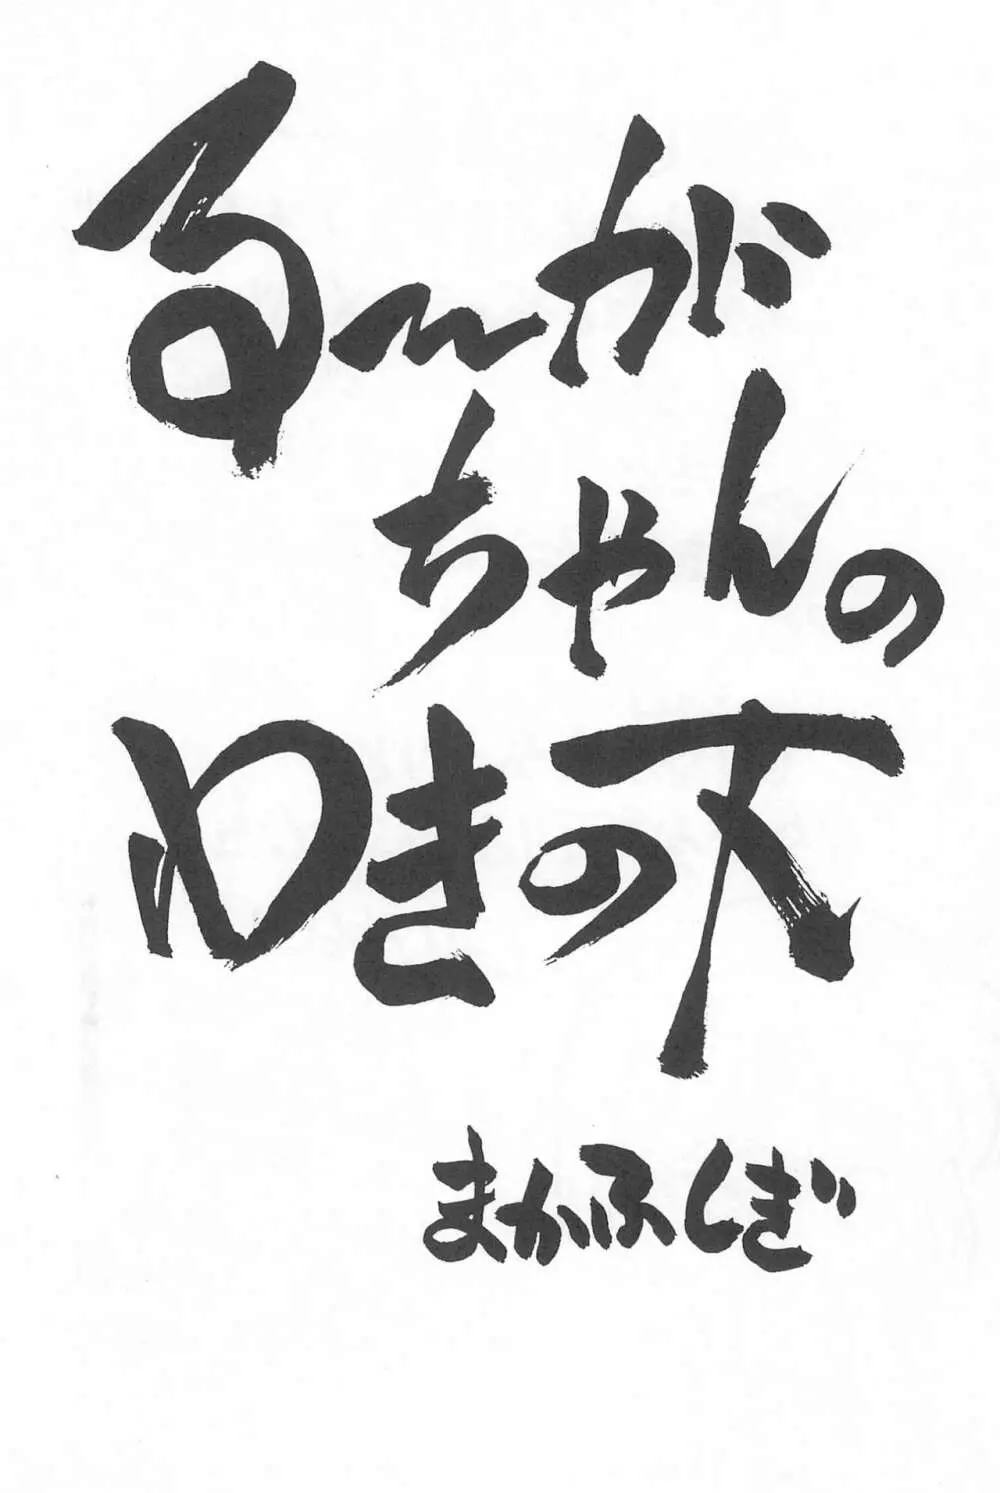 るーが
ちゃんの
わきの下
まかふしぎ